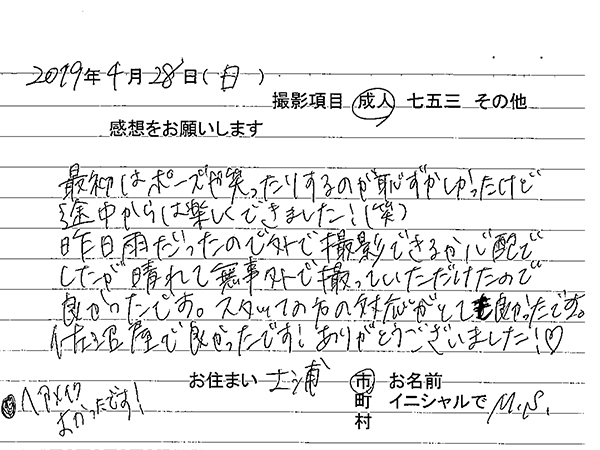 2019年4月28日(日)
撮影項目 成人 七五三 その他
感想をお願いします
最初はポーズや笑ったりするのが恥ずかしかったけど
途中からは楽しくできました!(笑)
昨日雨だったので外で撮影できるか心配で
したが晴れて無事外で撮っていただけたので
良かったです。スタッフの方の対応がとても良かったです。
で良かったです!ありがとうございました!♡
お住まい 土浦 市 お名前
町 イニシャルで M.S.
村
ヘアメイク
よかったです!